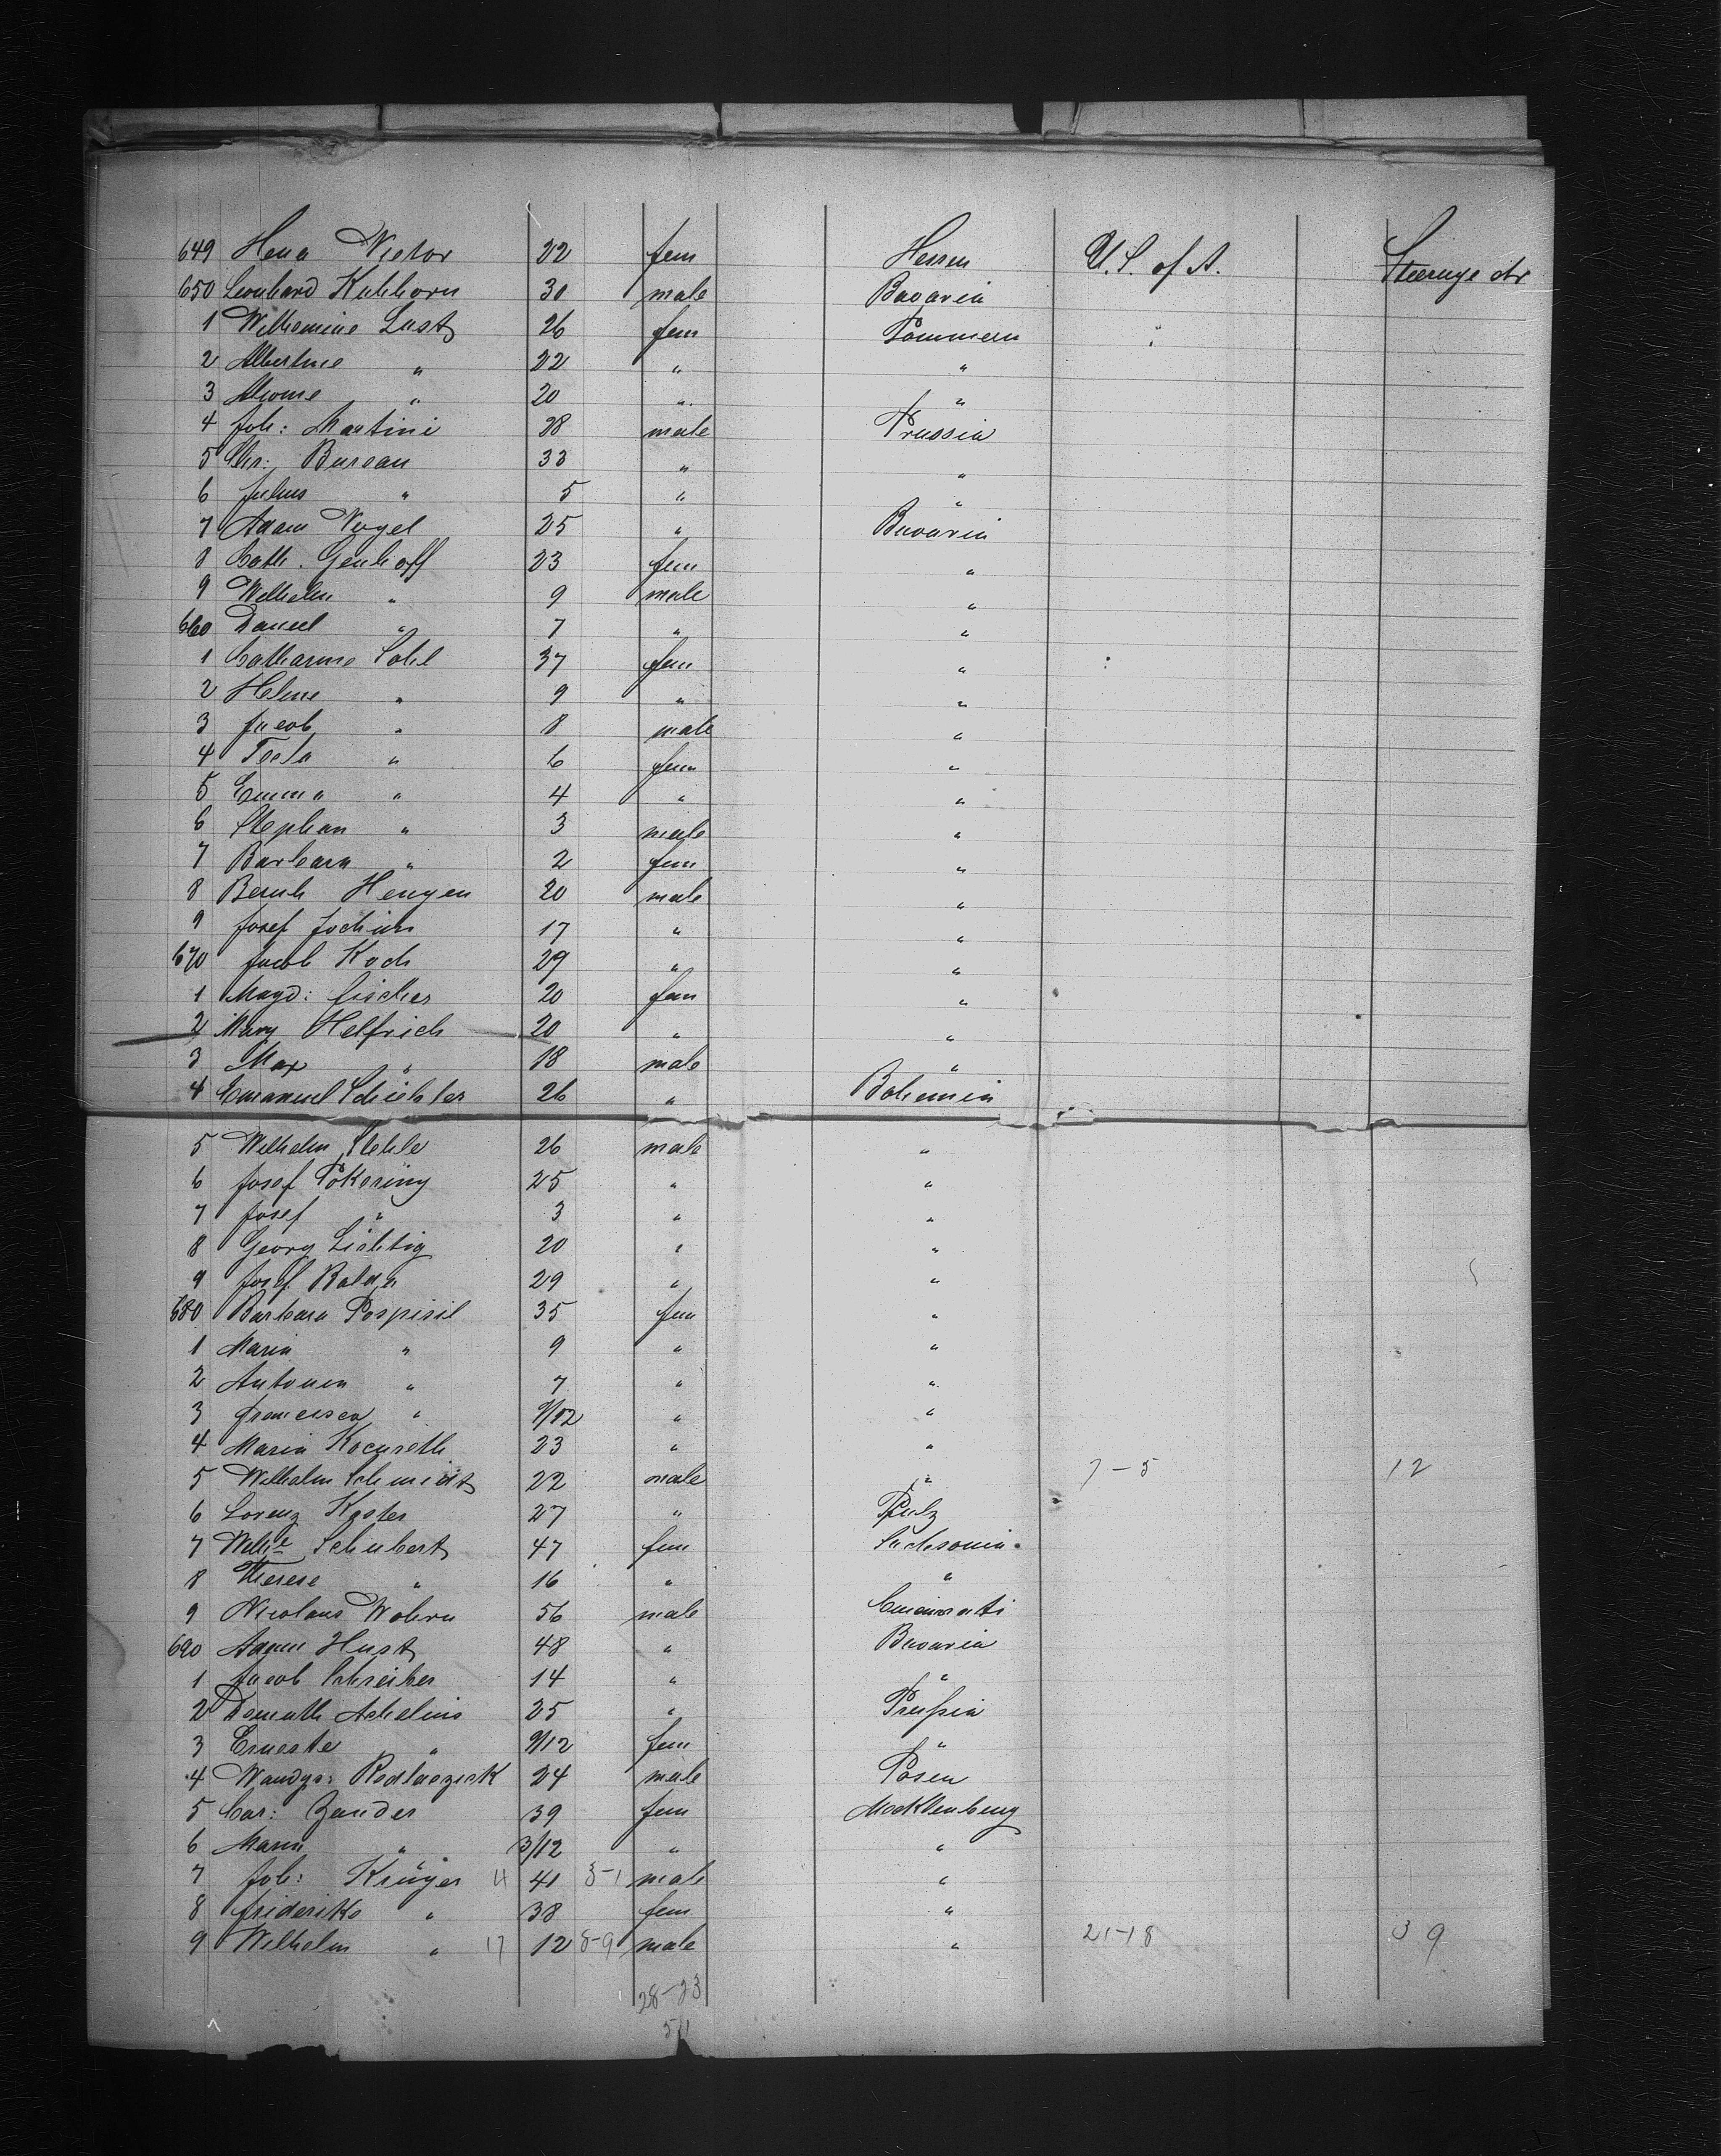 649 Victor 22 fem Hessen U. S. of A. Steerage
650 Leonhard Kuhhorn 30 male Bavaria
1 Wilhemine Lust 26 fem Pommern "
2 Albertine " 22 " "
3 " 20 " "
4 Joh: Martini 28 male Prussia
5 Chr: Bureau 33 " "
6 Julius " 5 " "
7 Adam Vogel 25 " Bavaria
8 Cath. Genhoff 23 fem "
9 Wilhelm " 9 male "
660 Daniel " 7 " "
1 Catharine Sohl 37 fem "
2 Helene " 9 " "
3 Jacob " 8 male "
4 " 6 fem "
5 Emma " 4 " "
6 Stephan " 3 male "
7 Barbara " 2 fem "
8 Bernh Hengen 20 male "
9 Josef Jochim 17 " "
670 Jacob Koch 29 " "
1 Magd: Fischer 20 fem "
2 Mary Helfrich 20 " "
3 Max " 18 male "
4 Emanuel 26 " Bohemia
5 Wilhelm Stehle 26 male "
6 Josef 25 " "
7 Josef " 3 " "
8 Georg Lichtig 20 " "
9 Josef 29 " "
680 Barbara Pospisil 35 fem "
1 Maria " 9 " "
2 Antonia " 7 " "
3 Francisca " 9/12 " "
4 Maria 23 " "
5 Wilhelm Schmidt 22 male " 7-5 12
6 Lorenz Koster 27 " Pfalz
7 Schubert 47 fem
8 Therese " 16 " "
9 Nicolaus 56 male Cincinnati
690 Adam Hust 48 " Bavaria
1 Jacob Schreiber 14 " "
2 Achelius 25 " Prussia
3 Erneste " 9/12 fem "
4 24 male Posen
5 Car: Zander 39 fem Mecklenburg
6 Maria " 3/12 " "
7 Joh: Krüger 41 male "
8 Friderike " 38 fem "
9 Wilhelm " 17 12 8-9 male " 21-18 39
28-23
51